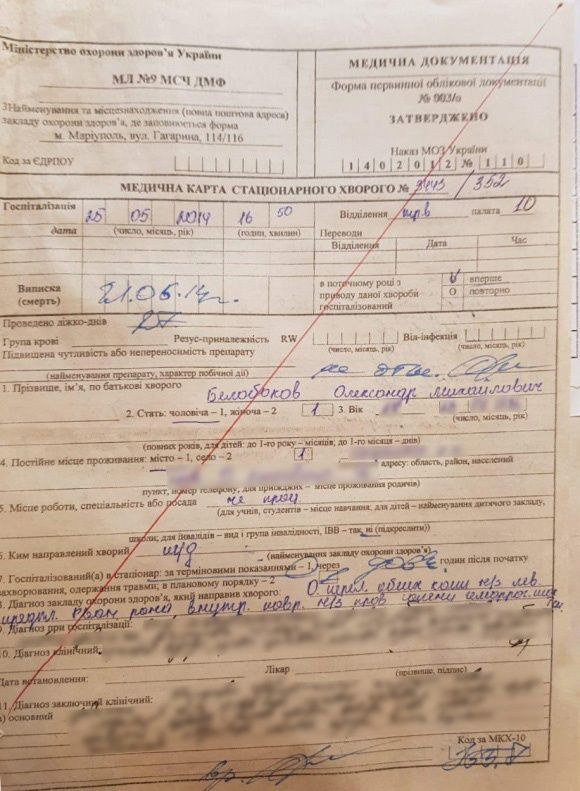 Міністерство охорони здоров'я України
МЛ №9 МСЧ ДМФ
3Найменування та місцезнаходження (повна поштова адреса)
закладу охорони здоров'я, де заповнюється форма
м. Маріуполь, вул. Гагарина, 114/116
Код за ЄДРПОУ
МЕДИЧНА ДОКУМЕНТАЦІЯ
Форма первинної облікової документації
№ 003/о
ЗАТВЕРДЖЕНО
Наказ МОЗ України
1 4 0 2 0 1 2 № 1 1 0
МЕДИЧНА КАРТА СТАЦІОНАРНОГО ХВОРОГО № /352
Госпіталізація 25 05 2014 16 50
дата (число, місяць, рік) (годин, хвилин)
Відділення трв палата 10
Переводи
Відділення Дата Час
Виписка
(смерть)
21.06.14г.
в поточному році з
приводу даної хвороби
госпіталізований
V вперше
О повторно
Проведено ліжко-днів 27
Група крові Резус-приналежність RW Віл-інфекція
(число, місяць, рік) (число, місяць, рік)
Підвищена чутливість або непереносимість препарату
(найменування препарату, характер побічної дії)
1. Прізвище, ім'я, по батькові хворого Белобоков Олександр Михайлович
2. Стать: чоловіча – 1, жіноча – 2 1 3. Вік
(число, місяць, рік)
(повних років, для дітей: до 1-го року – місяців, до 1-го місяця – днів)
4. Постійне місце проживання: місто – 1, село – 2 1
адресу: область, район, населений
пункт, номер телефону, для приїжджих – місце проживання родичів)
5. Місце роботи, спеціальність або посада не прац
(для учнів, студентів – місце навчання; для дітей – найменування дитячого закладу,
школи; для інвалідів – вид і група інвалідності, ІВВ – так, ні (підкреслити))
6. Ким направлений хворий
(найменування закладу охорони здоров'я)
7. Госпіталізований(а) в стаціонар: за терміновими показаннями – 1, через годин після початку
захворювання, одержання травми; в плановому порядку – 2
8. Діагноз закладу охорони здоров'я, який направив хворого:
9. Діагноз при госпіталізації:
10. Діагноз клінічний
Дата встановлення: Лікар
(прізвище, підпис)
11. Діагноз заключний клінічний:
а) основний
Код за МКХ-10